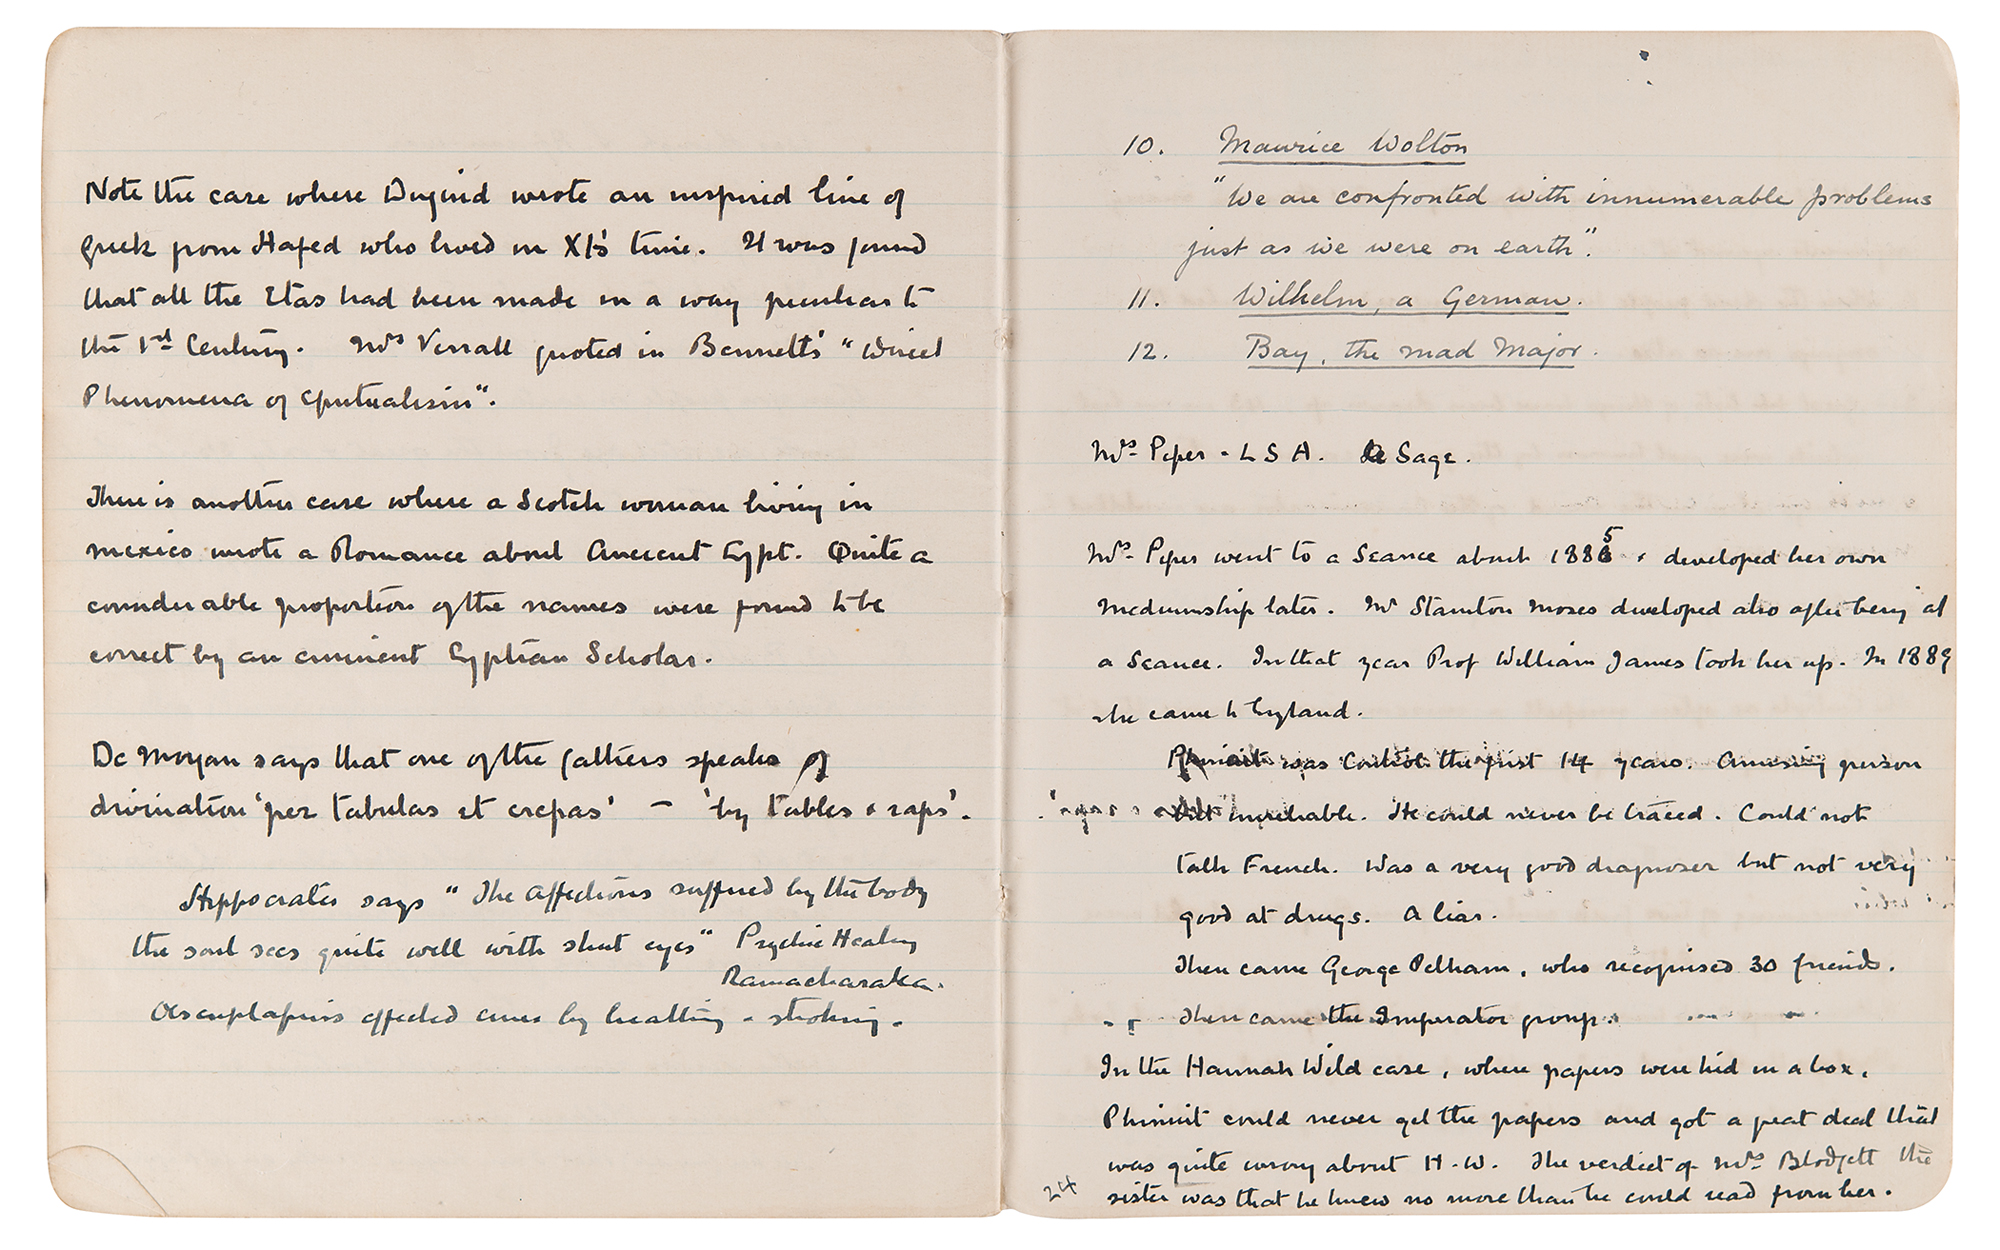 Note the case where Duguid wrote an inspired line of
Greek from Hafed who lived in Xt's time. It was found
that all the Etas had been made in a way peculiar to
the 1st Century. Mrs Verrall quoted in Bennett's "Direct
Phenomena of Spiritualism".
There is another case where a Scotch woman living in
Mexico wrote a Romance about Ancient Egypt. Quite a
considerable proportion of the names were found to be
correct by an eminent Egyptian Scholar.
De Morgan says that one of the fathers speaks of
divination 'per tabulas et crepas' — 'by tables & raps'.
Hippocrates says "The affections suffered by the body
the soul sees quite well with shut eyes" Psychic Healing
Ramacharaka.
Aesculapius effected cures by breathing & stroking.
10. Maurice Wolton
"We are confronted with innumerable problems
just as we were on earth".
11. Wilhelm, a German.
12. Bay, the mad Major.
Mrs Piper - L S A. Sage.
Mrs Piper went to a Seance about 1885 & developed her own
mediumship later. Mr Stainton Moses developed also after being at
a Seance. In that year Prof William James took her up. In 1889
she came to England.
Phinuit was Control the first 14 years. Amusing person
but unreliable. He could never be traced. Could not
talk French. Was a very good diagnoser but not very
good at drugs. A liar.
Then came George Pelham, who recognised 30 friends.
Then came the Imperator group.
In the Hannah Wild case, where papers were hid in a box,
Phinuit could never get the papers and got a great deal that
was quite wrong about H.W. The verdict of Mrs Blodgett the
sister was that he knew no more than he could read from her.
24